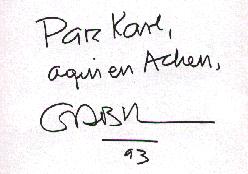 Par Karl,
aqui en Achen,
93